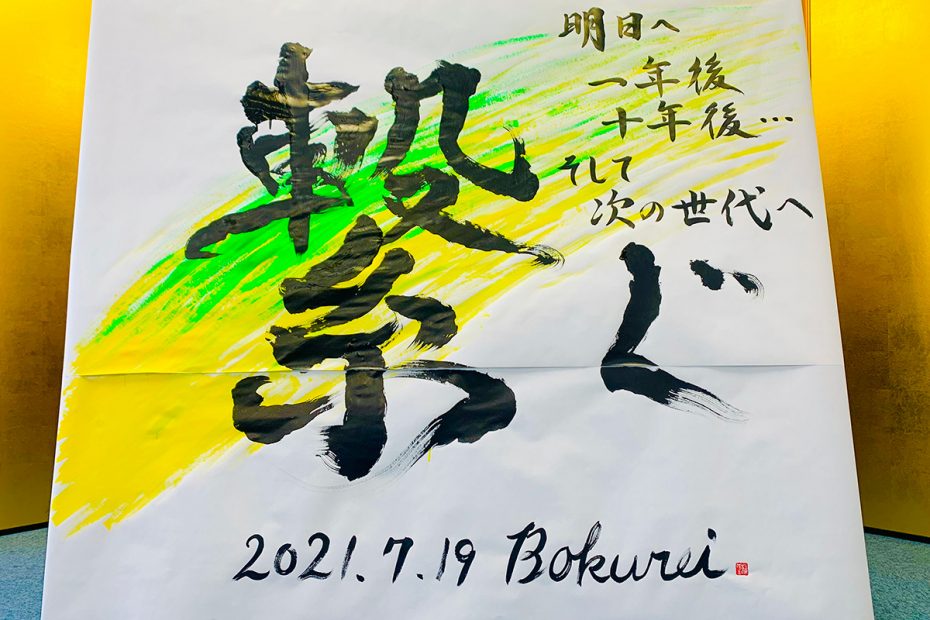 繋ぐ
明日へ
一年後
十年後…
そして
次の世代へ
2021.7.19 Bokurei